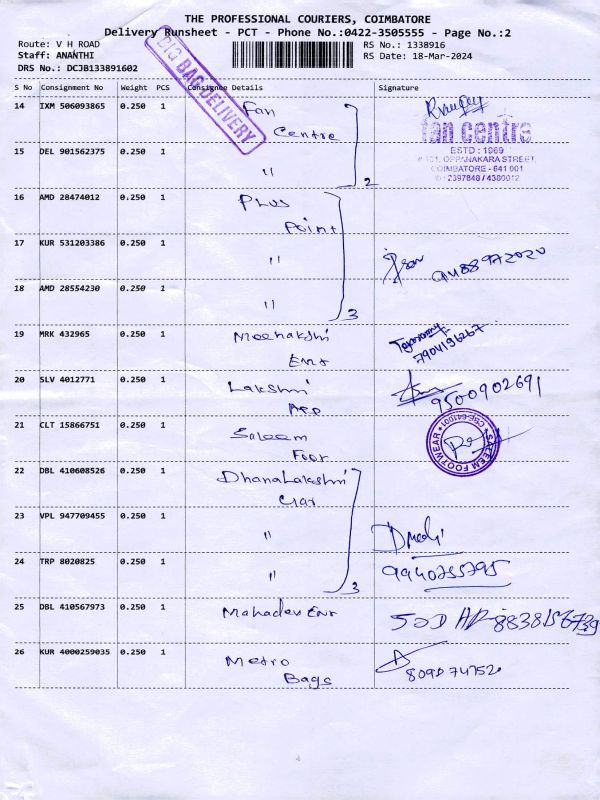 THE PROFESSIONAL COURIERS, COIMBATORE
Delivery Runsheet - PCT - Phone No.:0422-3505555 - Page No.:2
Route: V H ROAD
RS No.: 1338916
Staff: ANANTHI
RS Date: 18-Mar-2024
DRS No.: DCJB133891602
BIG BAG DELIVERY
S No Consignment No Weight PCS Consignee Details Signature
14 IXM 506093865 0.250 1 Fan Centre
fan centre
ESTD : 1969
OPPANAKARA STREET,
COIMBATORE - 641 001
: 2397848 / 4380012
15 DEL 901562375 0.250 1 "
2
16 AMD 28474012 0.250 1 Plus Point
17 KUR 531203386 0.250 1 "
18 AMD 28554230 0.250 1 "
3
19 MRK 432965 0.250 1 Meenakshi Ent
7904196267
20 SLV 4012771 0.250 1 Lakshmi App
9500902691
21 CLT 15866751 0.250 1 Saleem Foot
SALEEM FOOTWEAR * CBE-641001 *
22 DBL 410608526 0.250 1 DhanaLakshmi Gar
23 VPL 947709455 0.250 1 "
24 TRP 8020825 0.250 1 "
3
9940755795
25 DBL 410567973 0.250 1 Mahadev Enr
26 KUR 4000259035 0.250 1 Metro Bags